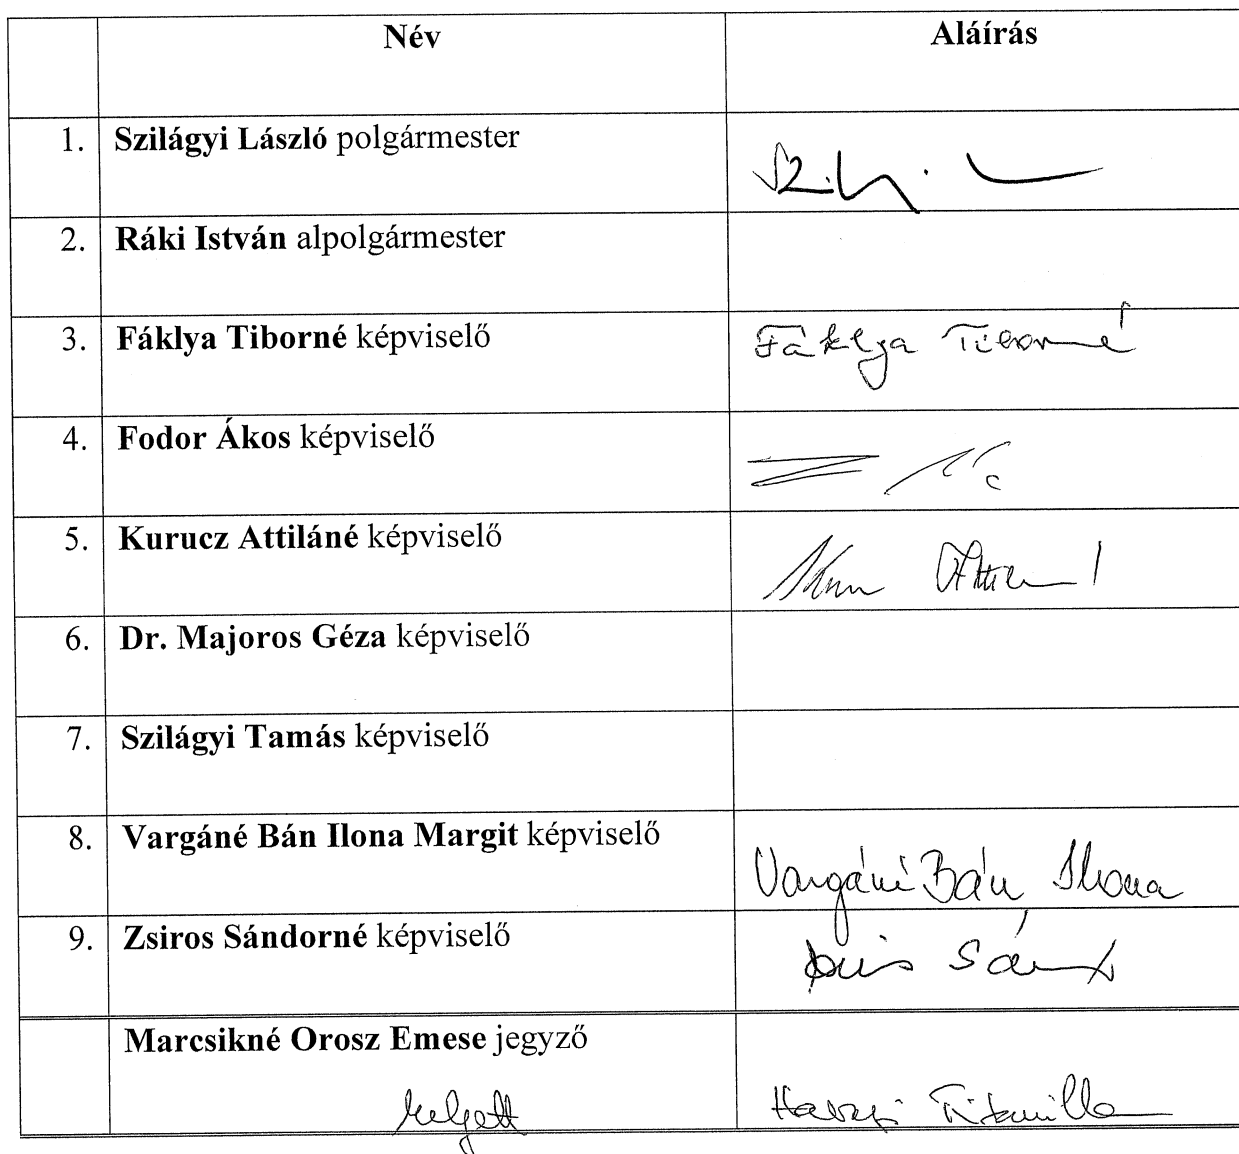 Név Aláírás
1. Szilágyi László polgármester
2. Ráki István alpolgármester
3. Fáklya Tiborné képviselő Fáklya Tiborné
4. Fodor Ákos képviselő
5. Kurucz Attiláné képviselő
6. Dr. Majoros Géza képviselő
7. Szilágyi Tamás képviselő
8. Vargáné Bán Ilona Margit képviselő Vargáné Bán Ilona
9. Zsiros Sándorné képviselő
Marcsikné Orosz Emese jegyző
helyett